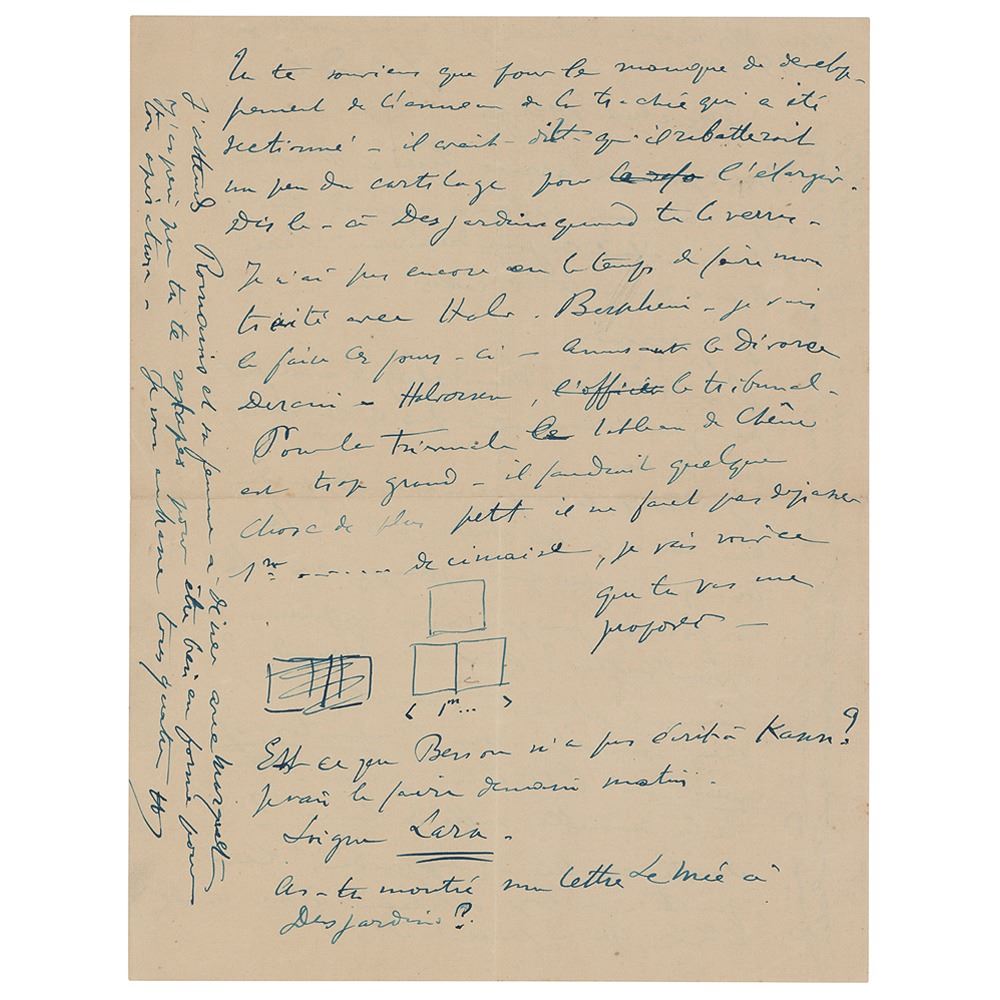 Tu te souviens que pour le manque de develop-
pement de l'anneau de la trachée qui a été
sectionné - il avait - dit - qu'il rabatterait
un peu du cartilage pour l'élargir.
Dis le - à Desjardins quand tu le verras -
Je n'ai pas encore eu le temps de faire mon
traité avec Halv. Bernheim - je vais
le faire ces jours-ci - Amusant le Divorce
Derain - Halvorsen, l'officier le tribunal -
Pour la triennale le tableau de Chêne
est trop grand - il faudrait quelque
chose de plus petit. il ne faut pas dépasser
1m ------- de cimaise, je vais voir ce
que tu vas me
proposer -
< 1m... >
Est ce que Besson n'a pas écrit à Kann ?
je vais le faire demain matin -
Soigne Lara -
As-tu montré ma lettre Le Mée à
Desjardins ?
J'attends Romains et sa femme à dîner avec Marguerite
J'espère que tu te retapes pour être bien en forme pour
ton opération - Je vous embrasse tous quatre H